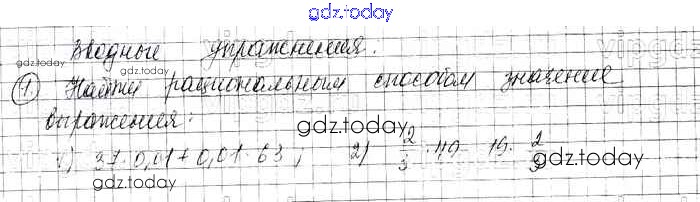 gdz.today
Вводные упражнения.
gdz.today
1. Найти рациональным способом значение
выражения:
gdz.today
1) 37·0,01+0,01·63; 2) 2/3·49 19·2/3
gdz.today